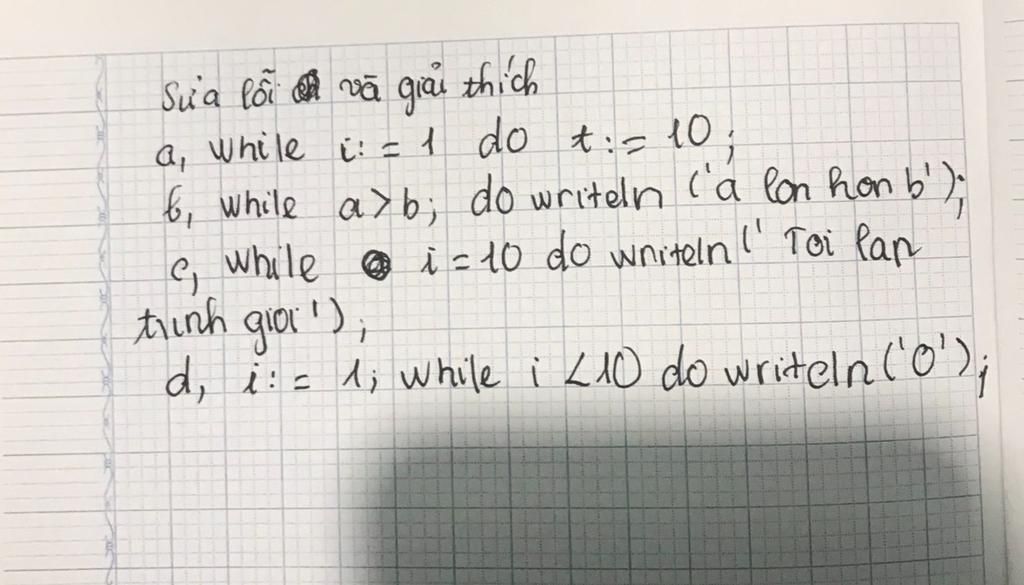 Sửa lỗi và giải thích
a, while i:=1 do t:=10;
b, while a>b; do writeln ('a lon hon b');
c, while i=10 do writeln (' Toi lap
trinh gioi');
d, i:=1; while i<10 do writeln ('0');